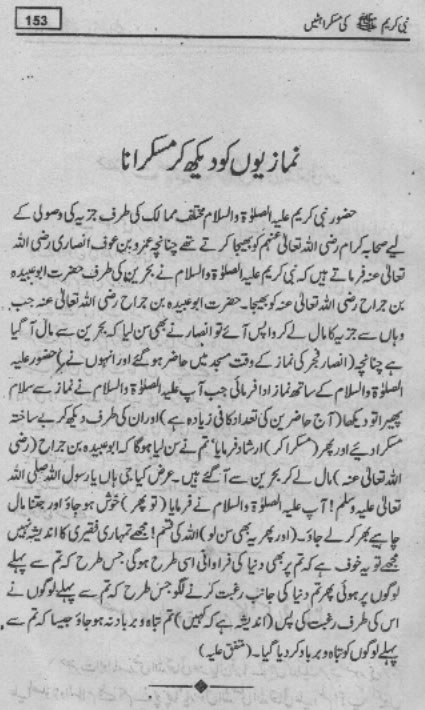 153
نبی کریم ﷺ کی مسکراہٹیں
نمازیوں کو دیکھ کر مسکرانا
حضور نبی کریم علیہ الصلوٰۃ والسلام مختلف ممالک کی طرف جزیہ کی وصولی کے
لیے صحابہ کرام رضی اللہ تعالیٰ عنہم کو بھیجا کرتے تھے چنانچہ عمرو بن عوف انصاری رضی اللہ
تعالیٰ عنہ فرماتے ہیں کہ نبی کریم علیہ الصلوٰۃ والسلام نے بحرین کی طرف حضرت ابوعبیدہ
بن جراح رضی اللہ تعالیٰ عنہ کو بھیجا۔ حضرت ابوعبیدہ بن جراح رضی اللہ تعالیٰ عنہ جب
وہاں سے جزیہ کا مال لے کر واپس آئے تو انصار نے بھی سن لیا کہ بحرین سے مال آ گیا
ہے چنانچہ (انصار فجر کی نماز کے وقت مسجد میں حاضر ہو گئے اور انہوں نے) حضور علیہ
الصلوٰۃ والسلام کے ساتھ نماز ادا فرمائی جب آپ علیہ الصلوٰۃ والسلام نے نماز سے سلام
پھیرا تو دیکھا (آج حاضرین کی تعداد کافی زیادہ ہے) اور ان کی طرف دیکھ کر بے ساختہ
مسکرا دیئے اور پھر (مسکرا کر) ارشاد فرمایا' تم نے سن لیا ہوگا کہ ابوعبیدہ بن جراح (رضی
اللہ تعالیٰ عنہ) مال لے کر بحرین سے آ گئے ہیں۔ عرض کیا جی ہاں یا رسول اللہ صلی اللہ
تعالیٰ علیہ وسلم! آپ علیہ الصلوٰۃ والسلام نے فرمایا (تو پھر) خوش ہو جاؤ اور جتنا مال
چاہیے بھر کر لے جاؤ۔ (اور پھر یہ بھی سن لو) اللہ کی قسم! مجھے تمہاری فقیری کا اندیشہ نہیں
مجھے تو یہ خوف ہے کہ تم پر بھی دنیا کی فراوانی اسی طرح ہوگی جس طرح کہ تم سے پہلے
لوگوں پر ہوئی پھر تم دنیا کی جانب رغبت کرنے لگو جس طرح کہ تم سے پہلے لوگوں نے
اس کی طرف رغبت کی پس (اندیشہ ہے کہ کہیں) تم تباہ و برباد نہ ہو جاؤ جیسا کہ تم سے
پہلے لوگوں کو تباہ و برباد کر دیا گیا۔ (متفق علیہ)